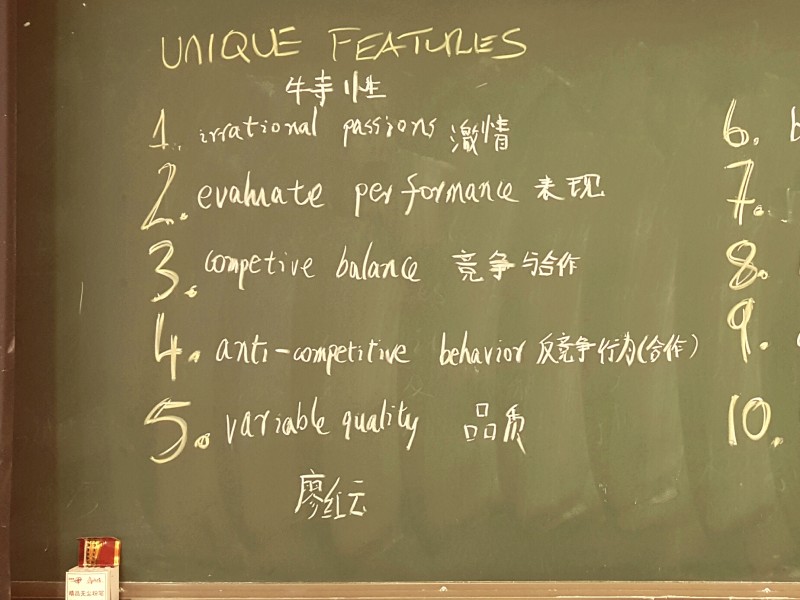 UNIQUE FEATURES
特性
1. irrational passions 激情
2. evaluate performance 表现
3. competive balance 竞争与合作
4. anti-competitive behavior 反竞争行为(合作)
5. variable quality 品质
廖红云
6. b
7.
8.
9.
10.